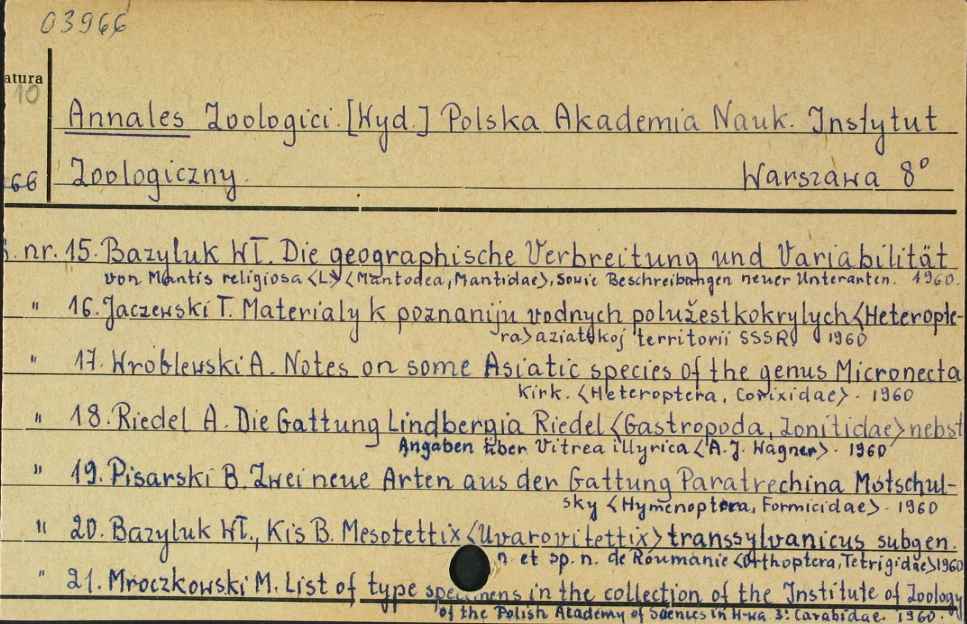 03966
atura
10
Annales Zoologici. [Wyd.] Polska Akademia Nauk. Instytut
66 Zoologiczny. Warszawa 8°
nr. 15. Bazyluk WŁ. Die geographische Verbreitung und Variabilität
von Mantis religiosa <L> <Mantodea, Mantidae>, Sowie Beschreibungen neuer Unterarten. 1960.
" 16. Jaczewski T. Materialy k poznaniju vodnych polužestkokrylych <Heteropte-
ra> aziatskoj territorii SSSR 1960
" 17. Wróblewski A. Notes on some Asiatic species of the genus Micronecta
Kirk. <Heteroptera, Corixidae>. 1960
" 18. Riedel A. Die Gattung Lindbergia Riedel <Gastropoda, Zonitidae> nebst
Angaben über Vitrea illyrica <A.J. Wagner>. 1960
" 19. Pisarski B. Zwei neue Arten aus der Gattung Paratrechina Motschul-
sky <Hymenoptera, Formicidae>. 1960
" 20. Bazyluk WŁ., Kis B. Mesotettix <Uvarovitettix> transsylvanicus subgen.
n et sp. n. de Roumanie <Orthoptera, Tetrigidae> 1960
" 21. Mroczkowski M. List of type specimens in the collection of the Institute of Zoology
of the Polish Academy of Sciences in W-wa 3. Carabidae. 1960.